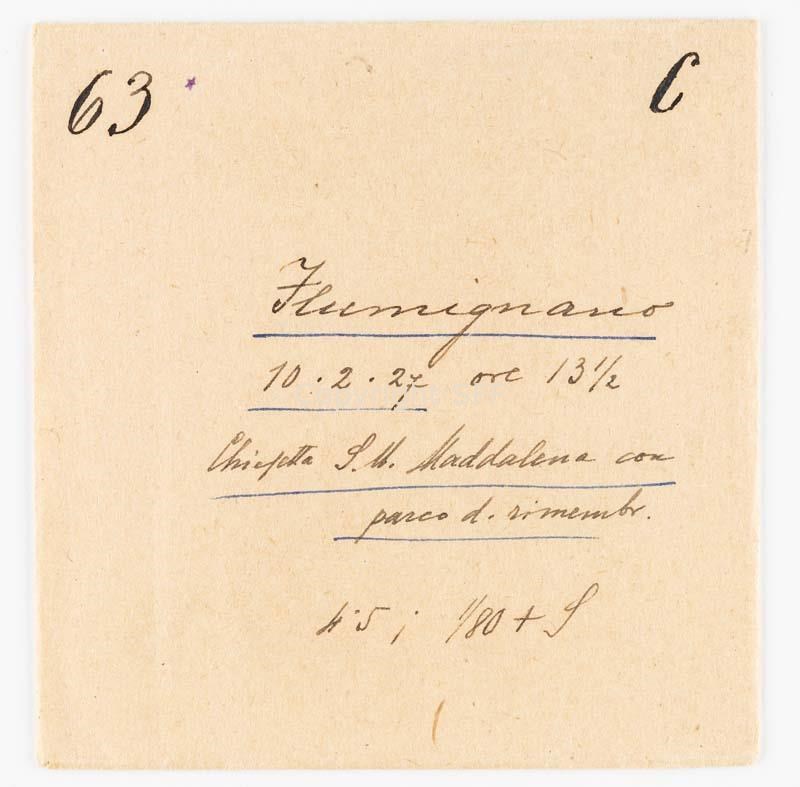 63 * C
Flumignano
10.2.27 ore 13 1/2
Chiesetta S. M. Maddalena con
parco d. rimembr.
4·5 ; 1/80 + S